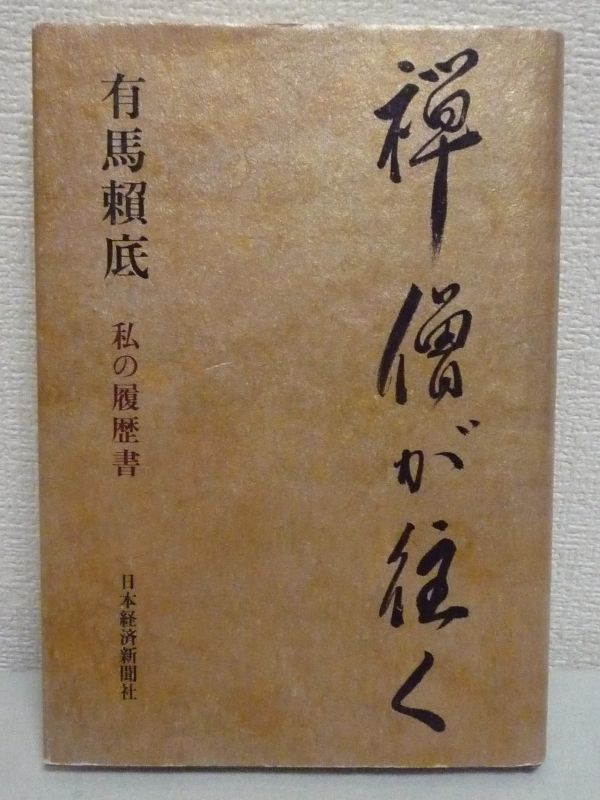 禅僧が往く
有馬頼底
私の履歴書
日本経済新聞社